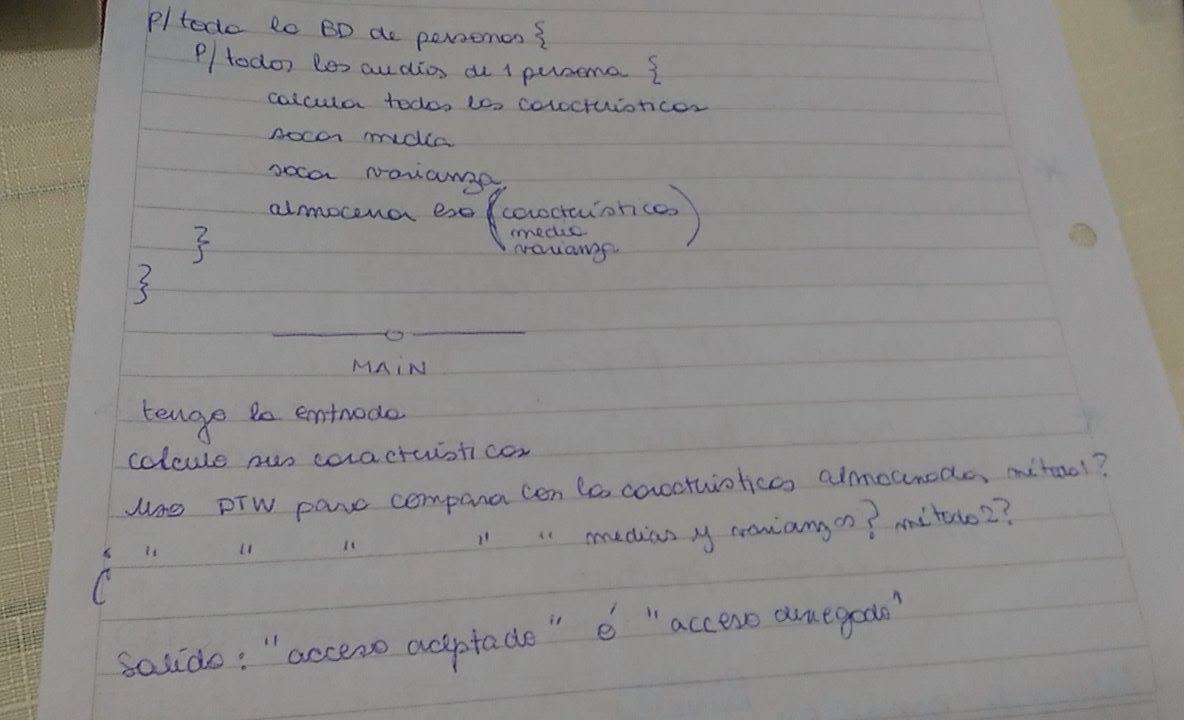 P/ toda la BD de personas {
P/ todos los audios de 1 persona {
calcular todas las características
sacar media
sacar varianza
almacenar eso (características
media
varianza)
}
}
MAIN
tengo la entrada
calculo sus características
Uso DTW para comparar con las características almacenadas método1?
" " " " " medias y varianzas? método2?
(
Salida: "acceso aceptado" ó "acceso denegado"